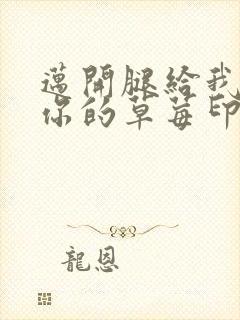 邁開腿給我
你的草莓印
龍恩